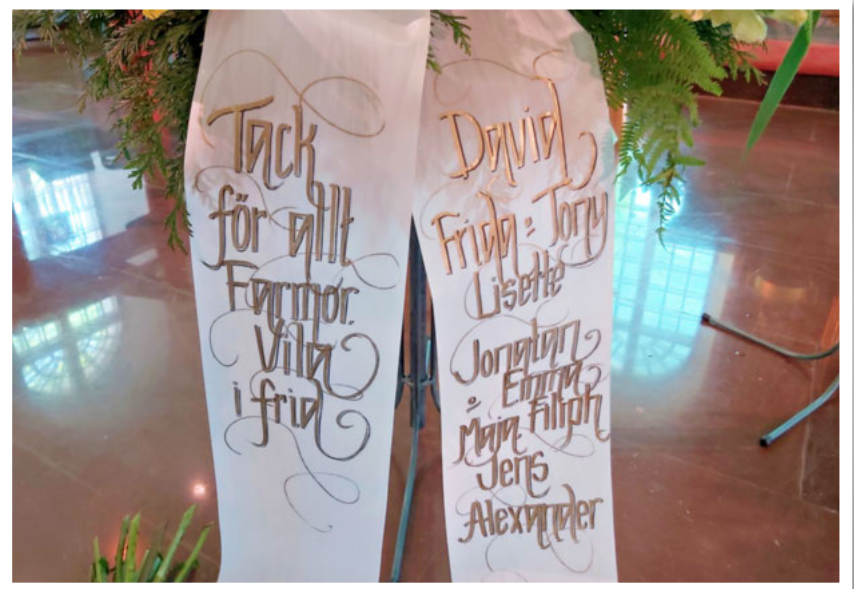 Tack
för allt
Farmor.
Vila
i frid
David
Frida & Tony
Lisette
Jonatan
Emma
& Filiph
Maja
Jens
Alexander